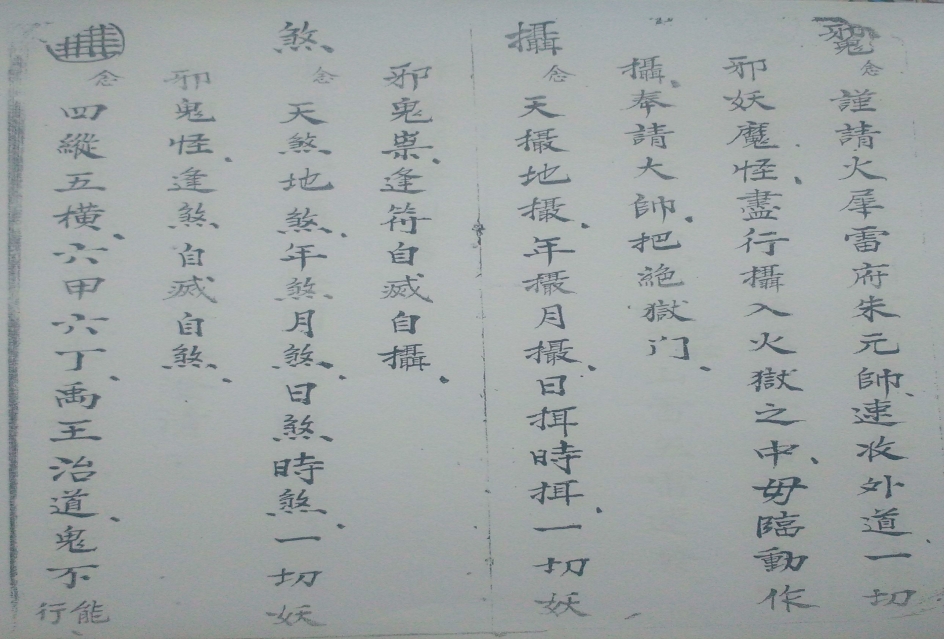 念謹請火犀雷府朱元帥、速收外道一切
邪妖魔怪、盡行攝入火獄之中、毋臨動作
攝、奉請大帥、把絶獄门、
攝念天攝地攝、年攝月攝、日挕時挕、一切妖
邪鬼祟、逢符自滅自攝、
煞念天煞地煞、年煞月煞、日煞、時煞、一切妖
邪鬼怪、逢煞自滅自煞、
念四縱五橫、六甲六丁、禹王治道、鬼不能行、